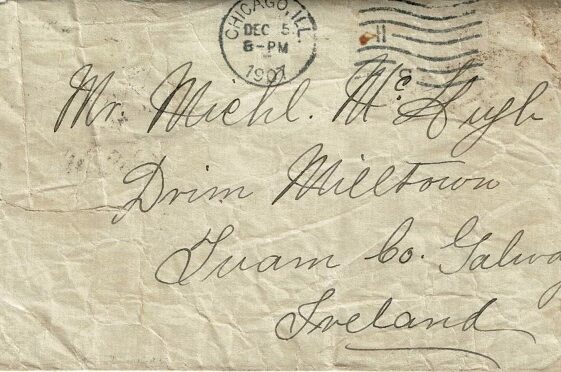 CHICAGO, ILL.
DEC 5
8-PM
1907
Mr. Michl. McHugh
Drim Milltown
Tuam Co. Galway
Ireland